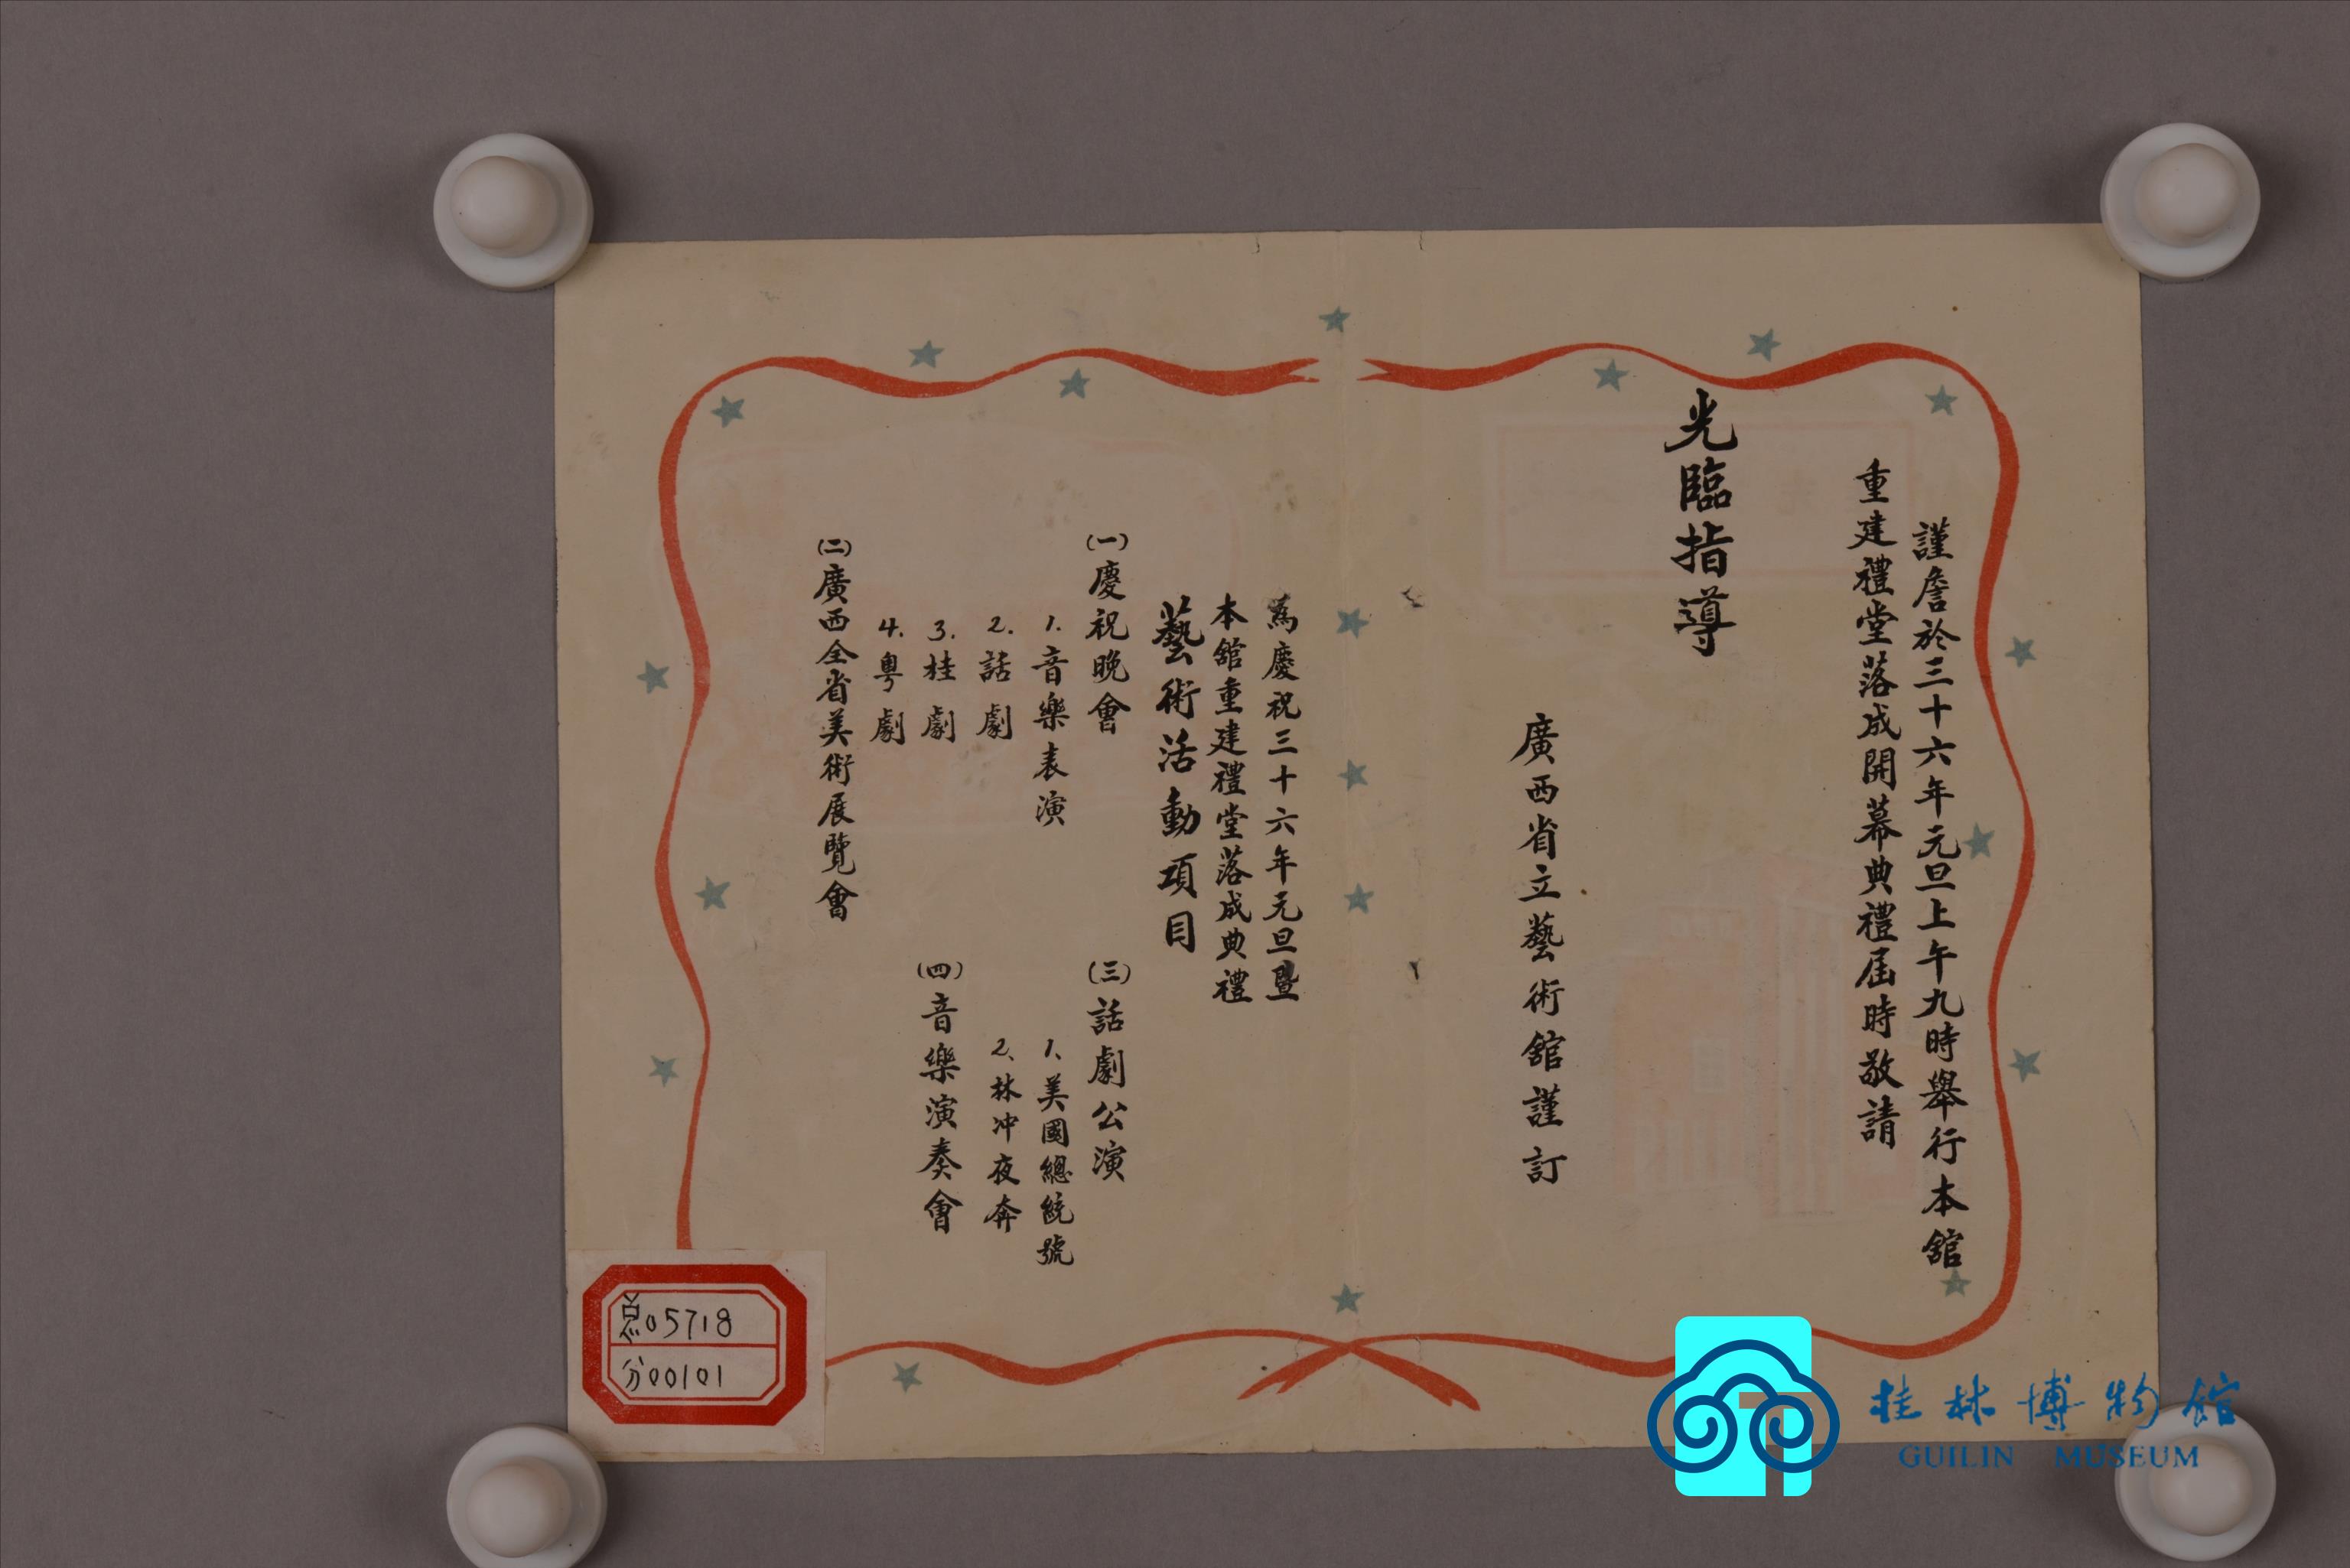 謹詹於三十六年元旦上午九時舉行本舘
重建禮堂落成開幕典禮屆時敬請
光臨指導
廣西省立藝術舘謹訂
為慶祝三十六年元旦暨
本舘重建禮堂落成典禮
藝術活動項目
(一)慶祝晚會
1.音樂表演
2.話劇
3.桂劇
4.粵劇
(二)廣西全省美術展覽會
(三)話劇公演
1、美國總統號
2、林冲夜奔
(四)音樂演奏會
总05718
分00101
桂林博物館
GUILIN MUSEUM